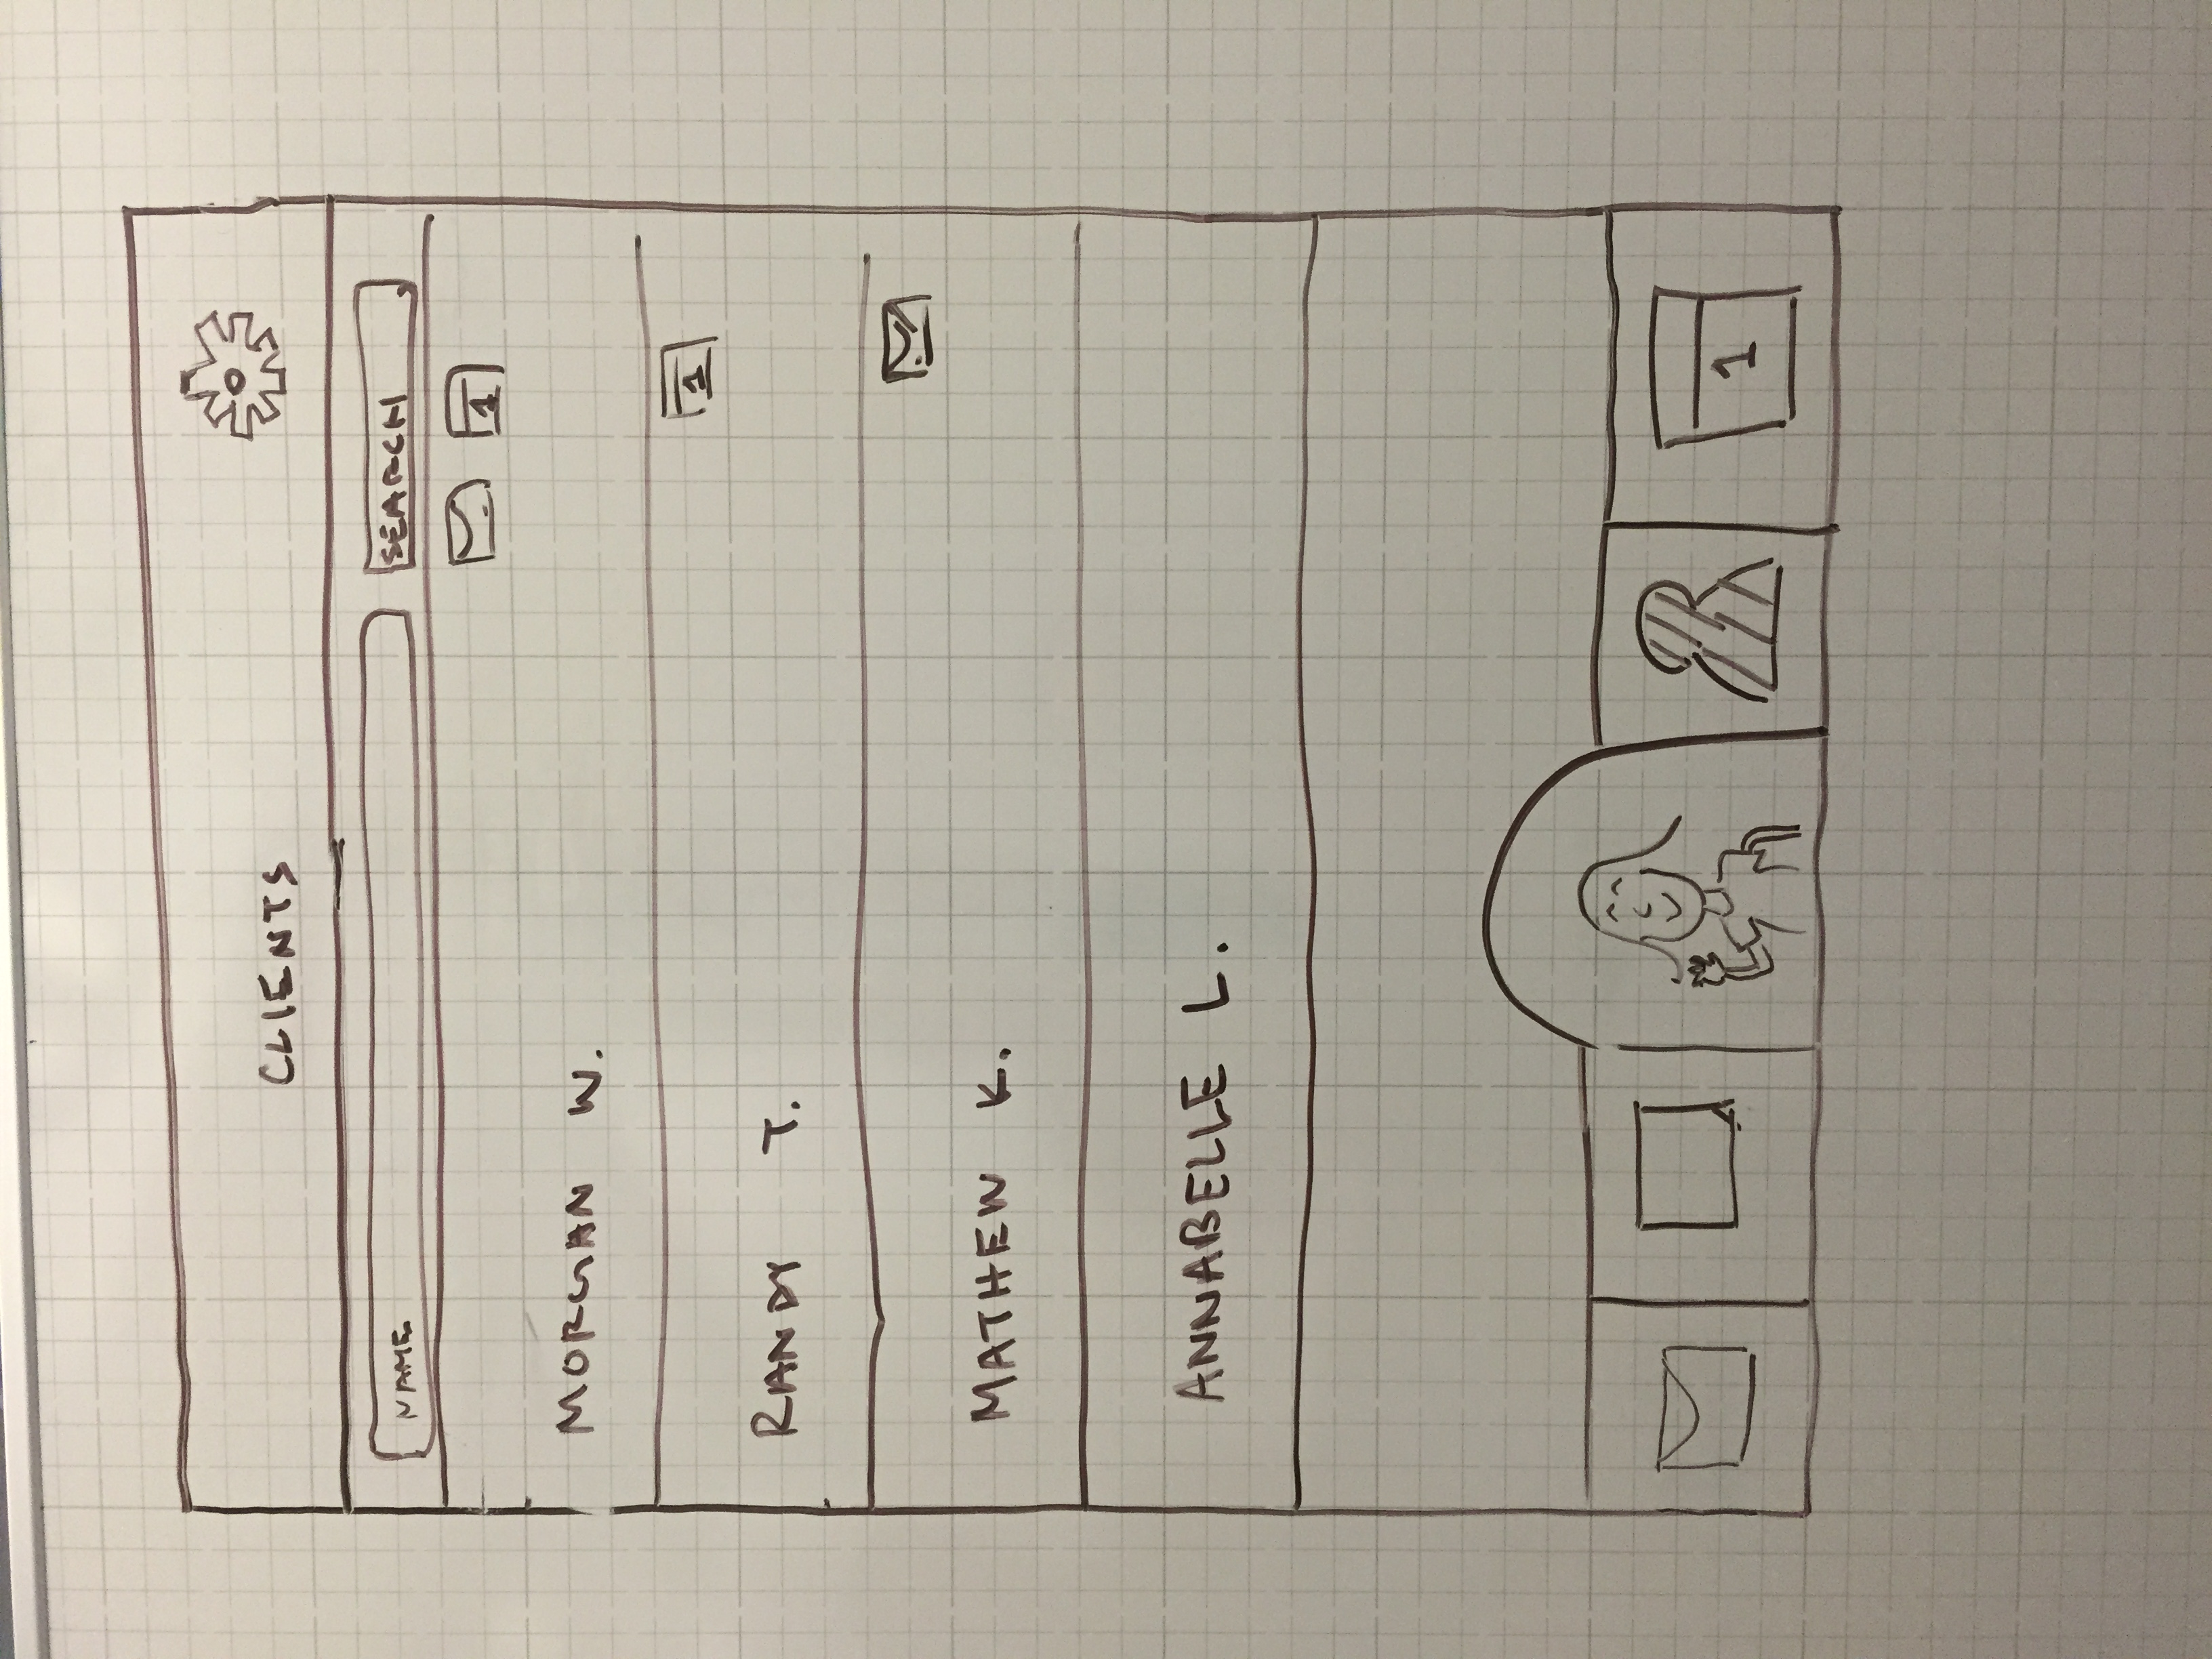 CLIENTS
NAME SEARCH
1
MORGAN W.
1
RANDY T.
MATHEW K.
ANNABELLE L.
1